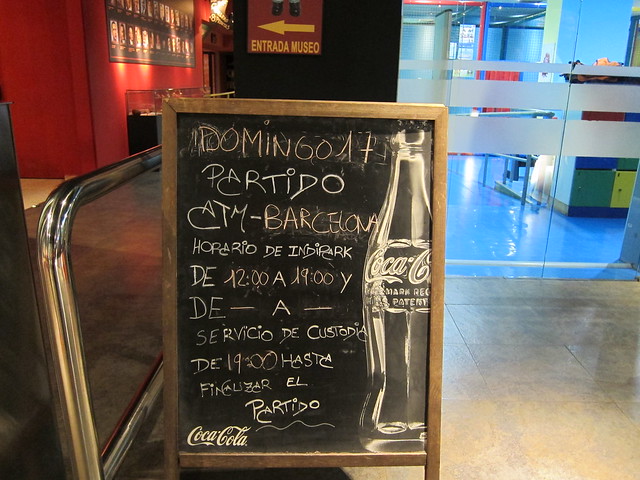 ENTRADA MUSEO
DOMINGO 17
PARTIDO
ATM-BARCELONA
HORARIO DE INDIPARK
DE 12:00 A 19:00 Y
DE — A —
SERVICIO DE CUSTODIA
DE 19:00 HASTA
FINALIZAR EL
PARTIDO
Coca-Cola
Coca-C
MARK REG
PATENT